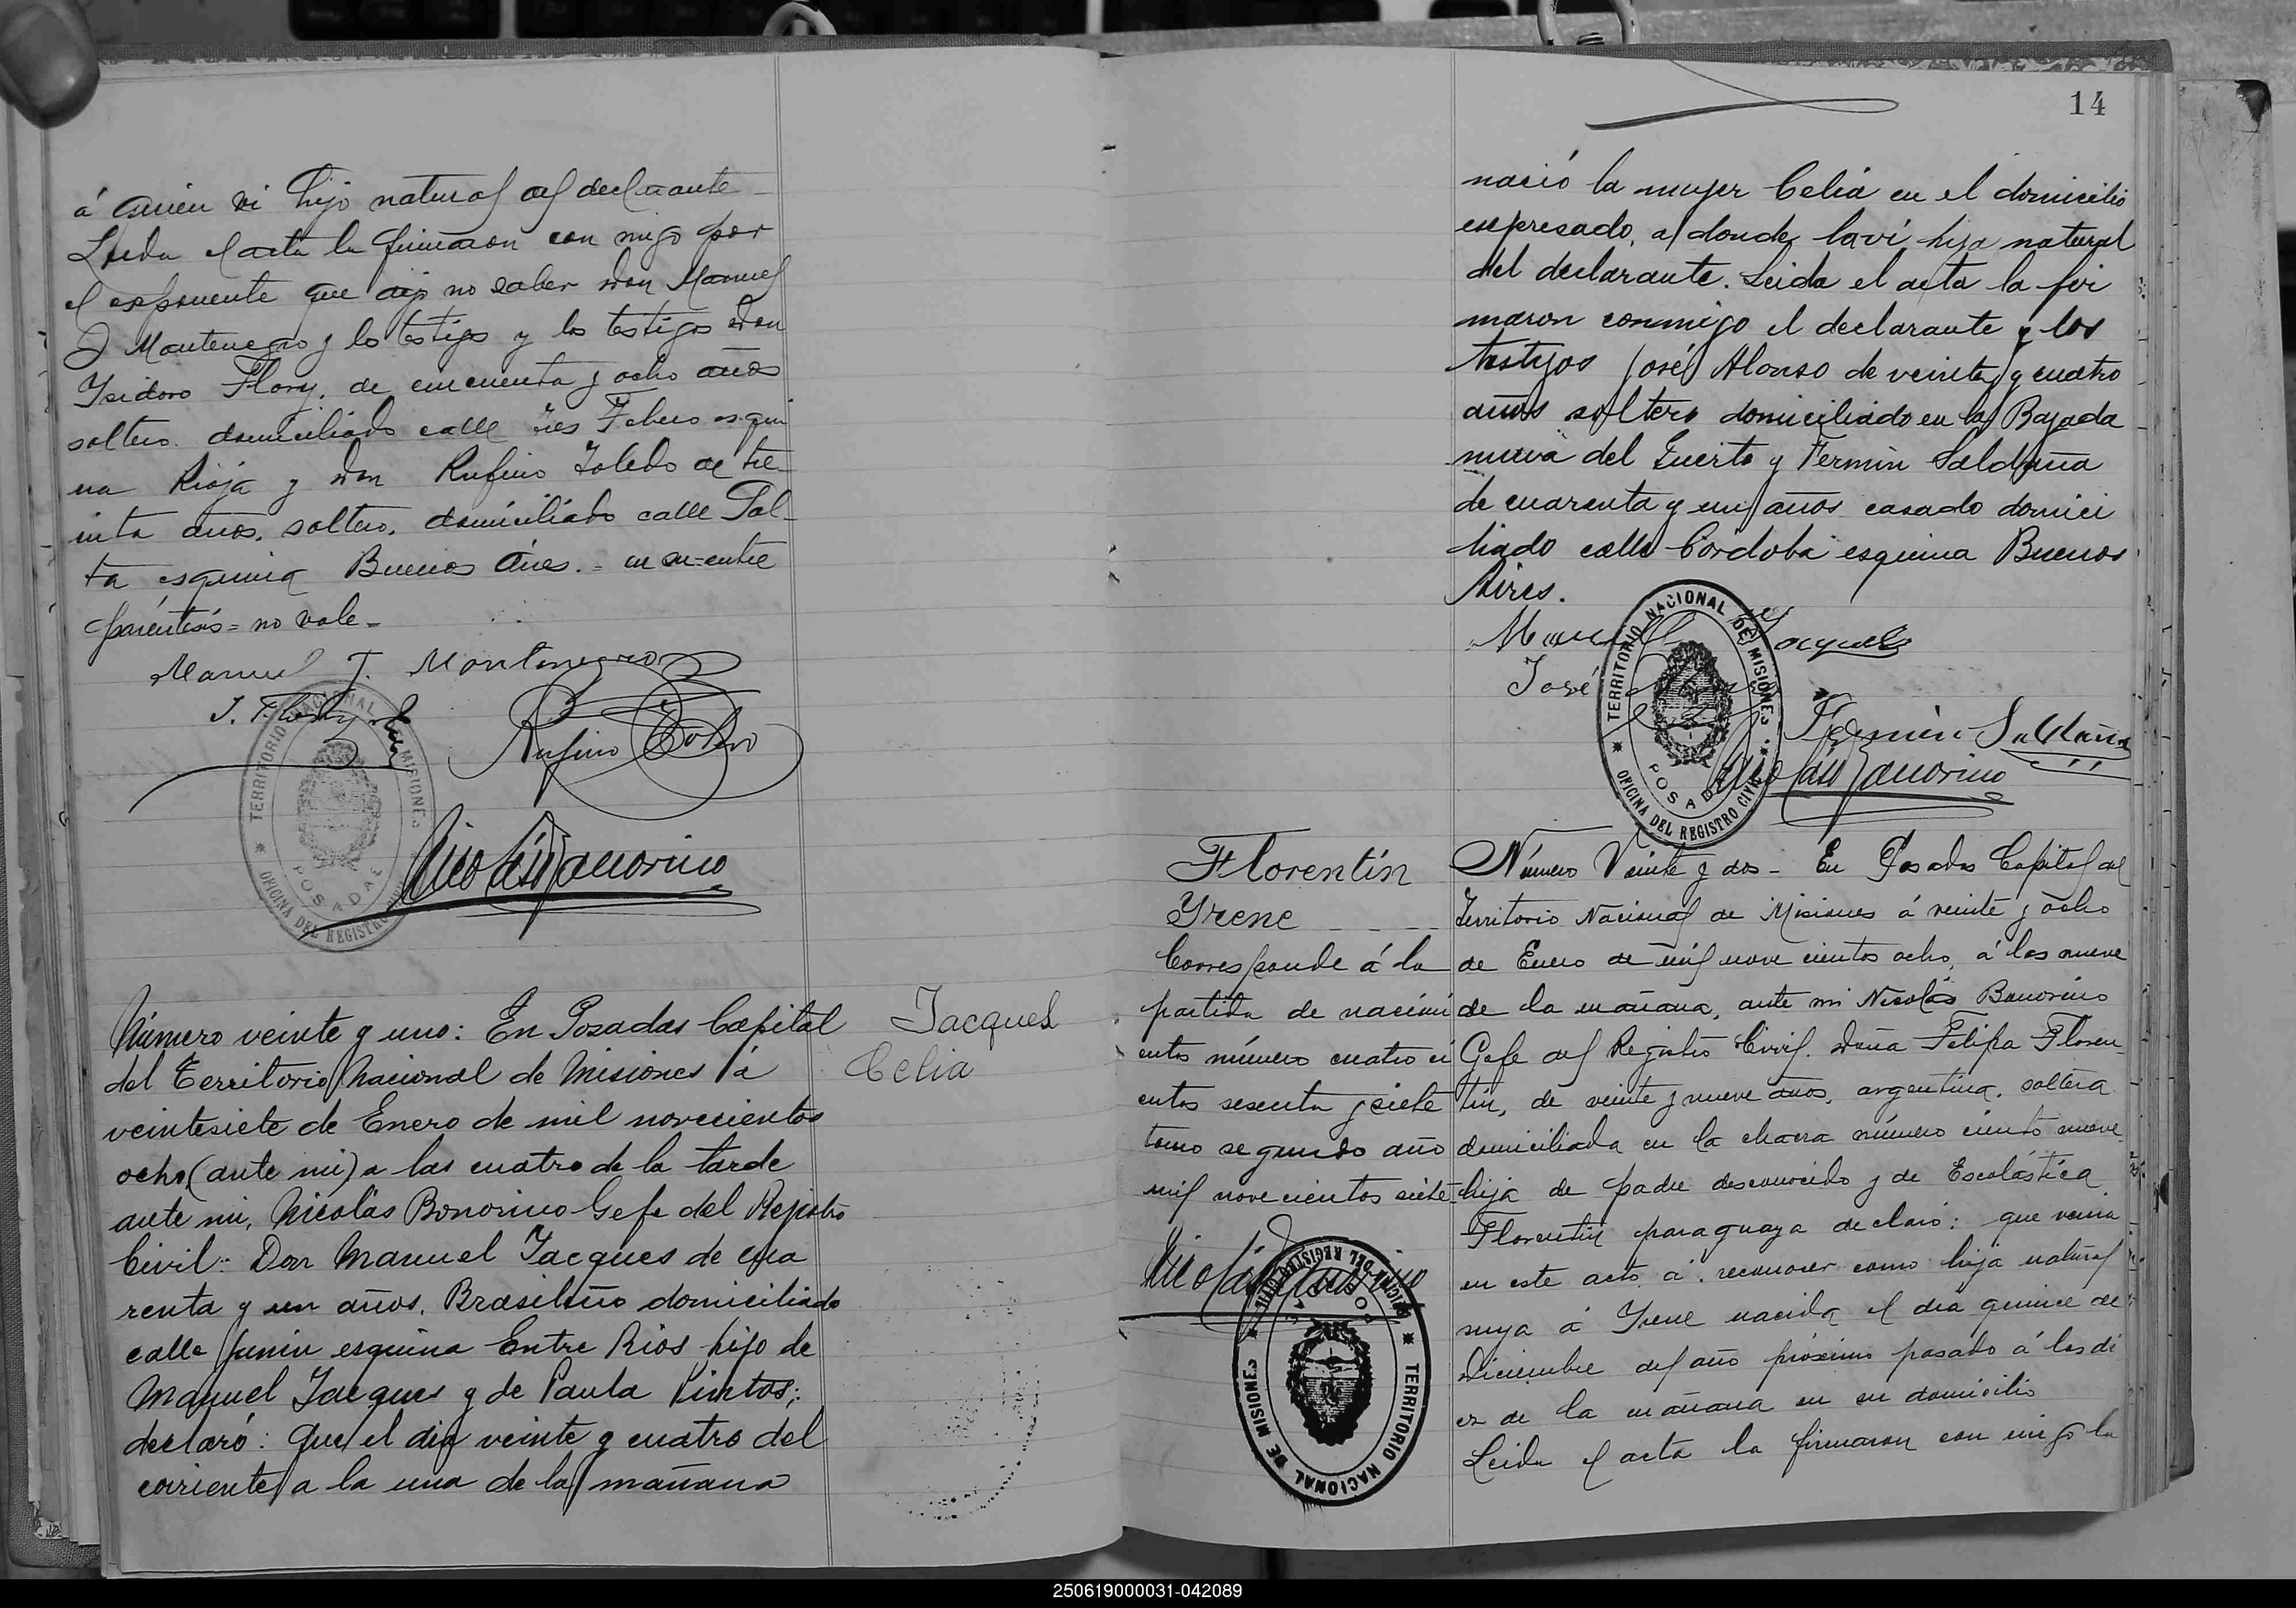 á quien vi hijo natural del declarante
Leida el acta la firmaron con migo por
el exponente que dijo no saber Don Manuel
J Montenegro y los testigos y los testigos Don
Isidoro Flory, de cincuenta y ocho años
soltero domiciliado calle Tres Febrero esqui
na Rioja y Don Rufino Toledo de tre
inta años, soltero, domiciliado calle Sal-
ta esquina Buenos Aires. = entre
paréntesis = no vale -
Manuel J. Montenegro
I. Flory
Rufino Toledo
Nicolás Bonorino
TERRITORIO NACIONAL DE MISIONES
OFICINA DEL REGISTRO CIVIL
POSADAS
Jacques
Celia
Número veinte y uno: En Posadas Capital
del Territorio Nacional de Misiones á
veintesiete de Enero de mil novecientos
ocho (ante mi) a las cuatro de la tarde
ante mi, Nicolás Bonorino Gefe del Rejistro
Civil: Don Manuel Jacques de cua
renta y un años, Brasileño domiciliado
calle Junin esquina Entre Rios hijo de
Manuel Jacques y de Paula Pintos;
declaró: Que el dia veinte y cuatro del
corriente a la una de la mañana
14
nació la mujer Celia en el domicilio
espresado, a donde la ví, hija natural
del declarante. Leida el acta la fir
maron conmigo el declarante y los
testigos José Alonso de veinte y cuatro
años soltero domiciliado en la Bajada
nueva del Puerto y Fermin Saldaña
de cuarenta y un años casado domici
liado calle Cordoba esquina Buenos
Aires.
Manuel Jacques
José
Fermin Saldaña
Nicolás Bonorino
TERRITORIO NACIONAL DE MISIONES
OFICINA DEL REGISTRO CIVIL
POSADAS
Florentín
Yrene
Corresponde á la
partida de nacimi
ento número cuatro ci
entos sesenta y siete
tomo segundo año
mil novecientos siete
Nicolás Bonorino
TERRITORIO NACIONAL DE MISIONES
OFICINA DEL REGISTRO CIVIL
Número Veinte y dos - En Posadas Capital del
Territorio Nacional de Misiones á veinte y ocho
de Enero de mil nove cientos ocho, á las nueve
de la mañana, ante mi Nicolás Bonorino
Gefe del Registro Civil. Doña Felipa Floren-
tin, de veinte y nueve años, argentina, soltera
domiciliada en la chacra número ciento nueve
hija de padre desconocido y de Escolástica
Florentin paraguaya declaró: que venia
en este acto á reconocer como hija natural
suya á Yrene nacida el dia quince de
Diciembre del año próximo pasado á las di
ez de la mañana en su domicilio
Leida el acta la firmaron con migo la
250619000031-042089